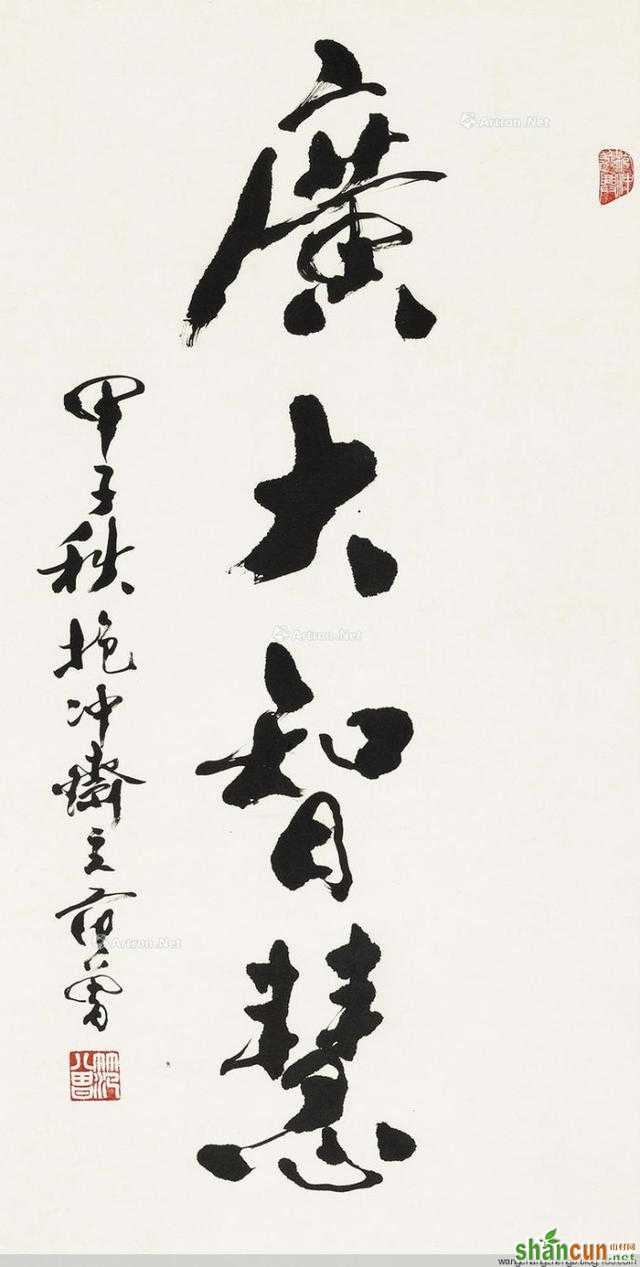 廣大智慧
甲子秋抱冲齋主范曾
Artron.Net
Artron.Net
Artron.Net
shancun
山村网